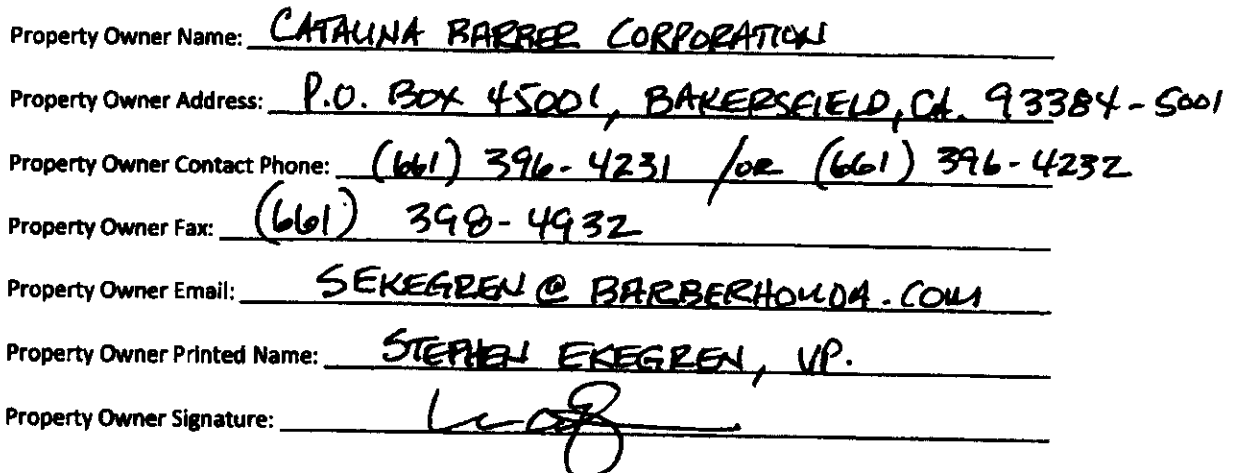 Property Owner Name: CATALINA BARBER CORPORATION
Property Owner Address: P.O. BOX 45001, BAKERSFIELD, CA. 93384-5001
Property Owner Contact Phone: (661) 396-4231 /or (661) 396-4232
Property Owner Fax: (661) 398-4932
Property Owner Email: SEKEGREN@BARBERHONDA.COM
Property Owner Printed Name: STEPHEN EKEGREN, VP.
Property Owner Signature: